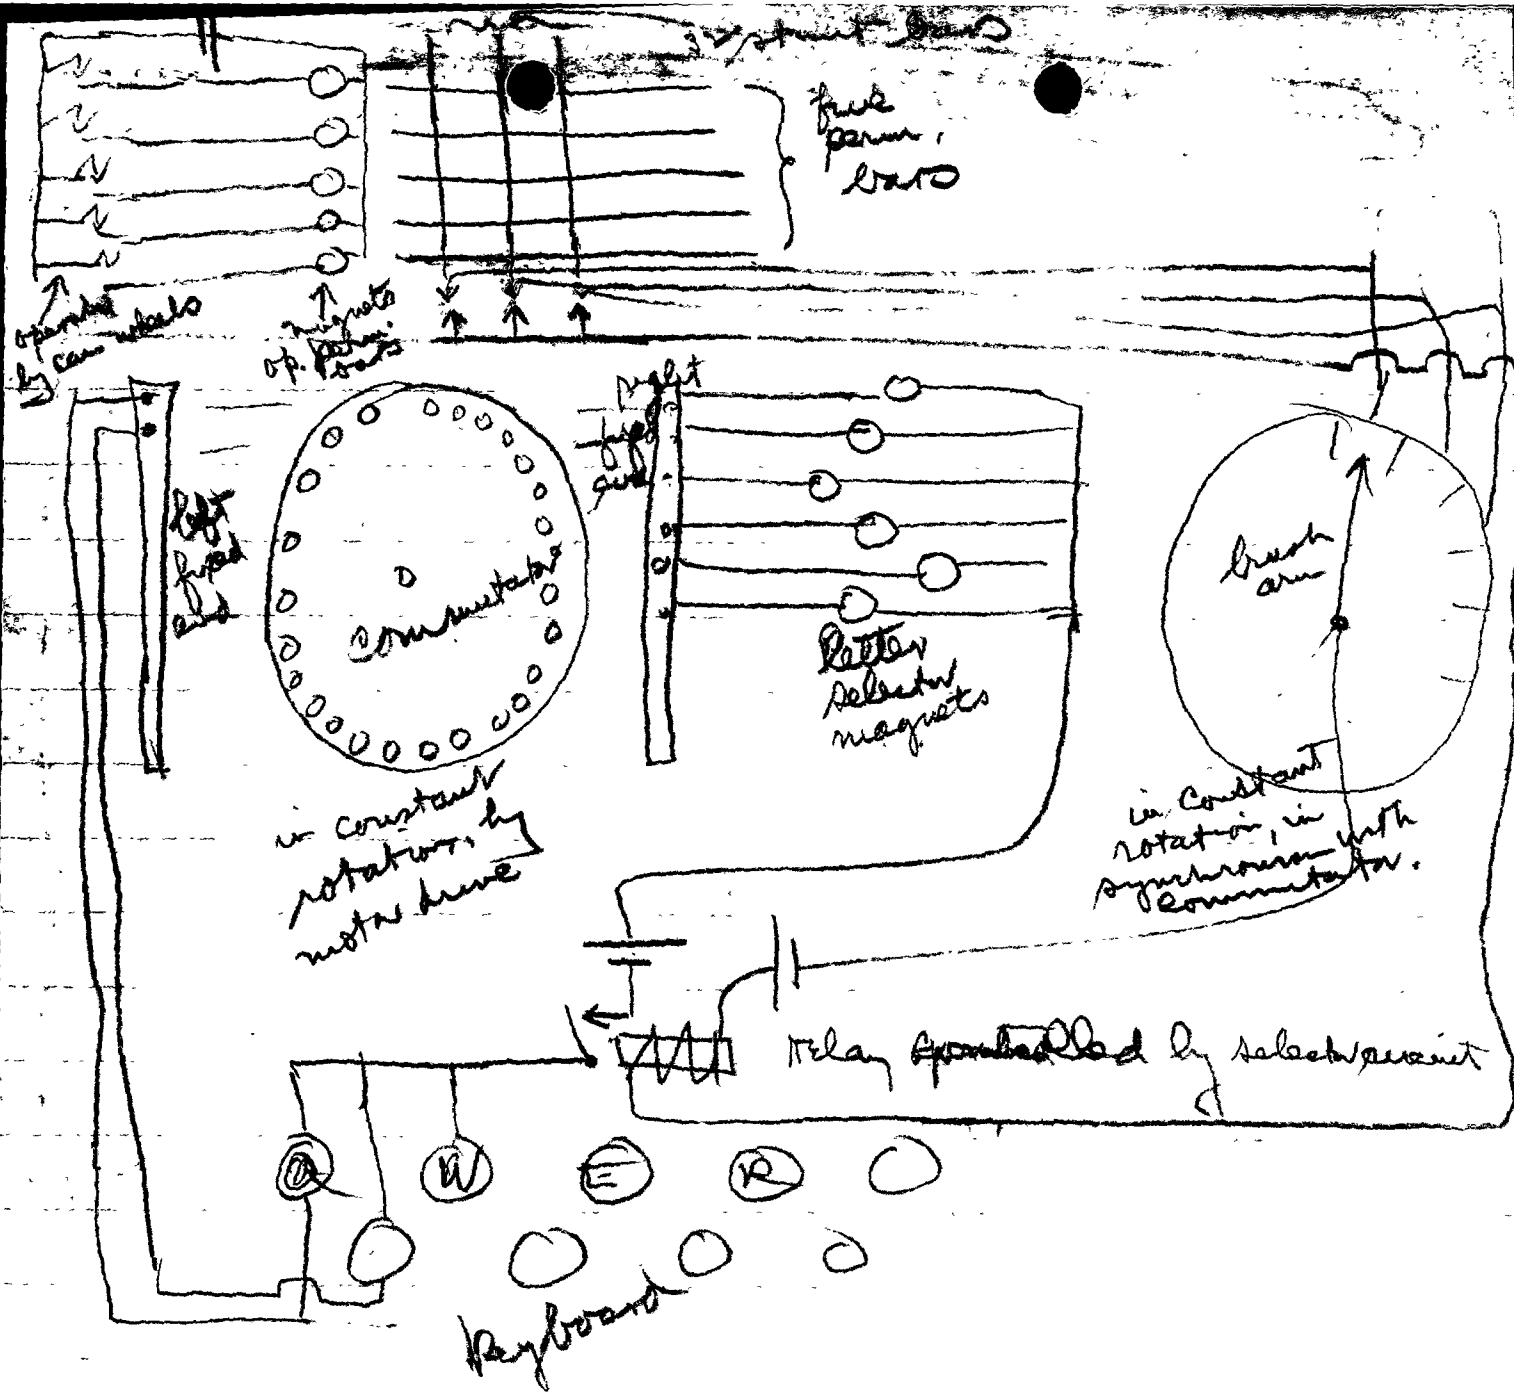 bars
five
perm.
bars
operated
by cam wheels
magnets
op. perm.
bars
right
fixed
end
left
fixed
end
commutator
brush
arm
letter
selector
magnets
in constant
rotation, by
motor drive
in constant
rotation, in
synchronism with
commutator.
Relay controlled by selector circuit
Q W E R
Keyboard